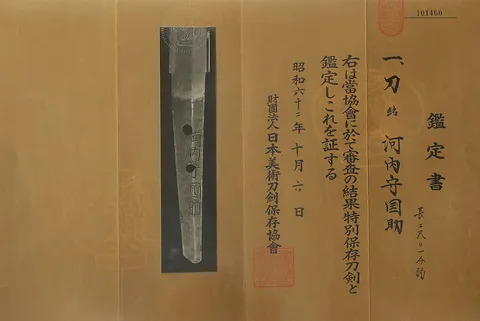 101460
鑑定書
一、刀 銘 河内守国助
長二尺〇一分弱
右は當協會に於て審査の結果特別保存刀剣と
鑑定しこれを証する
昭和六十二年十月六日
財團法人日本美術刀剣保存協會